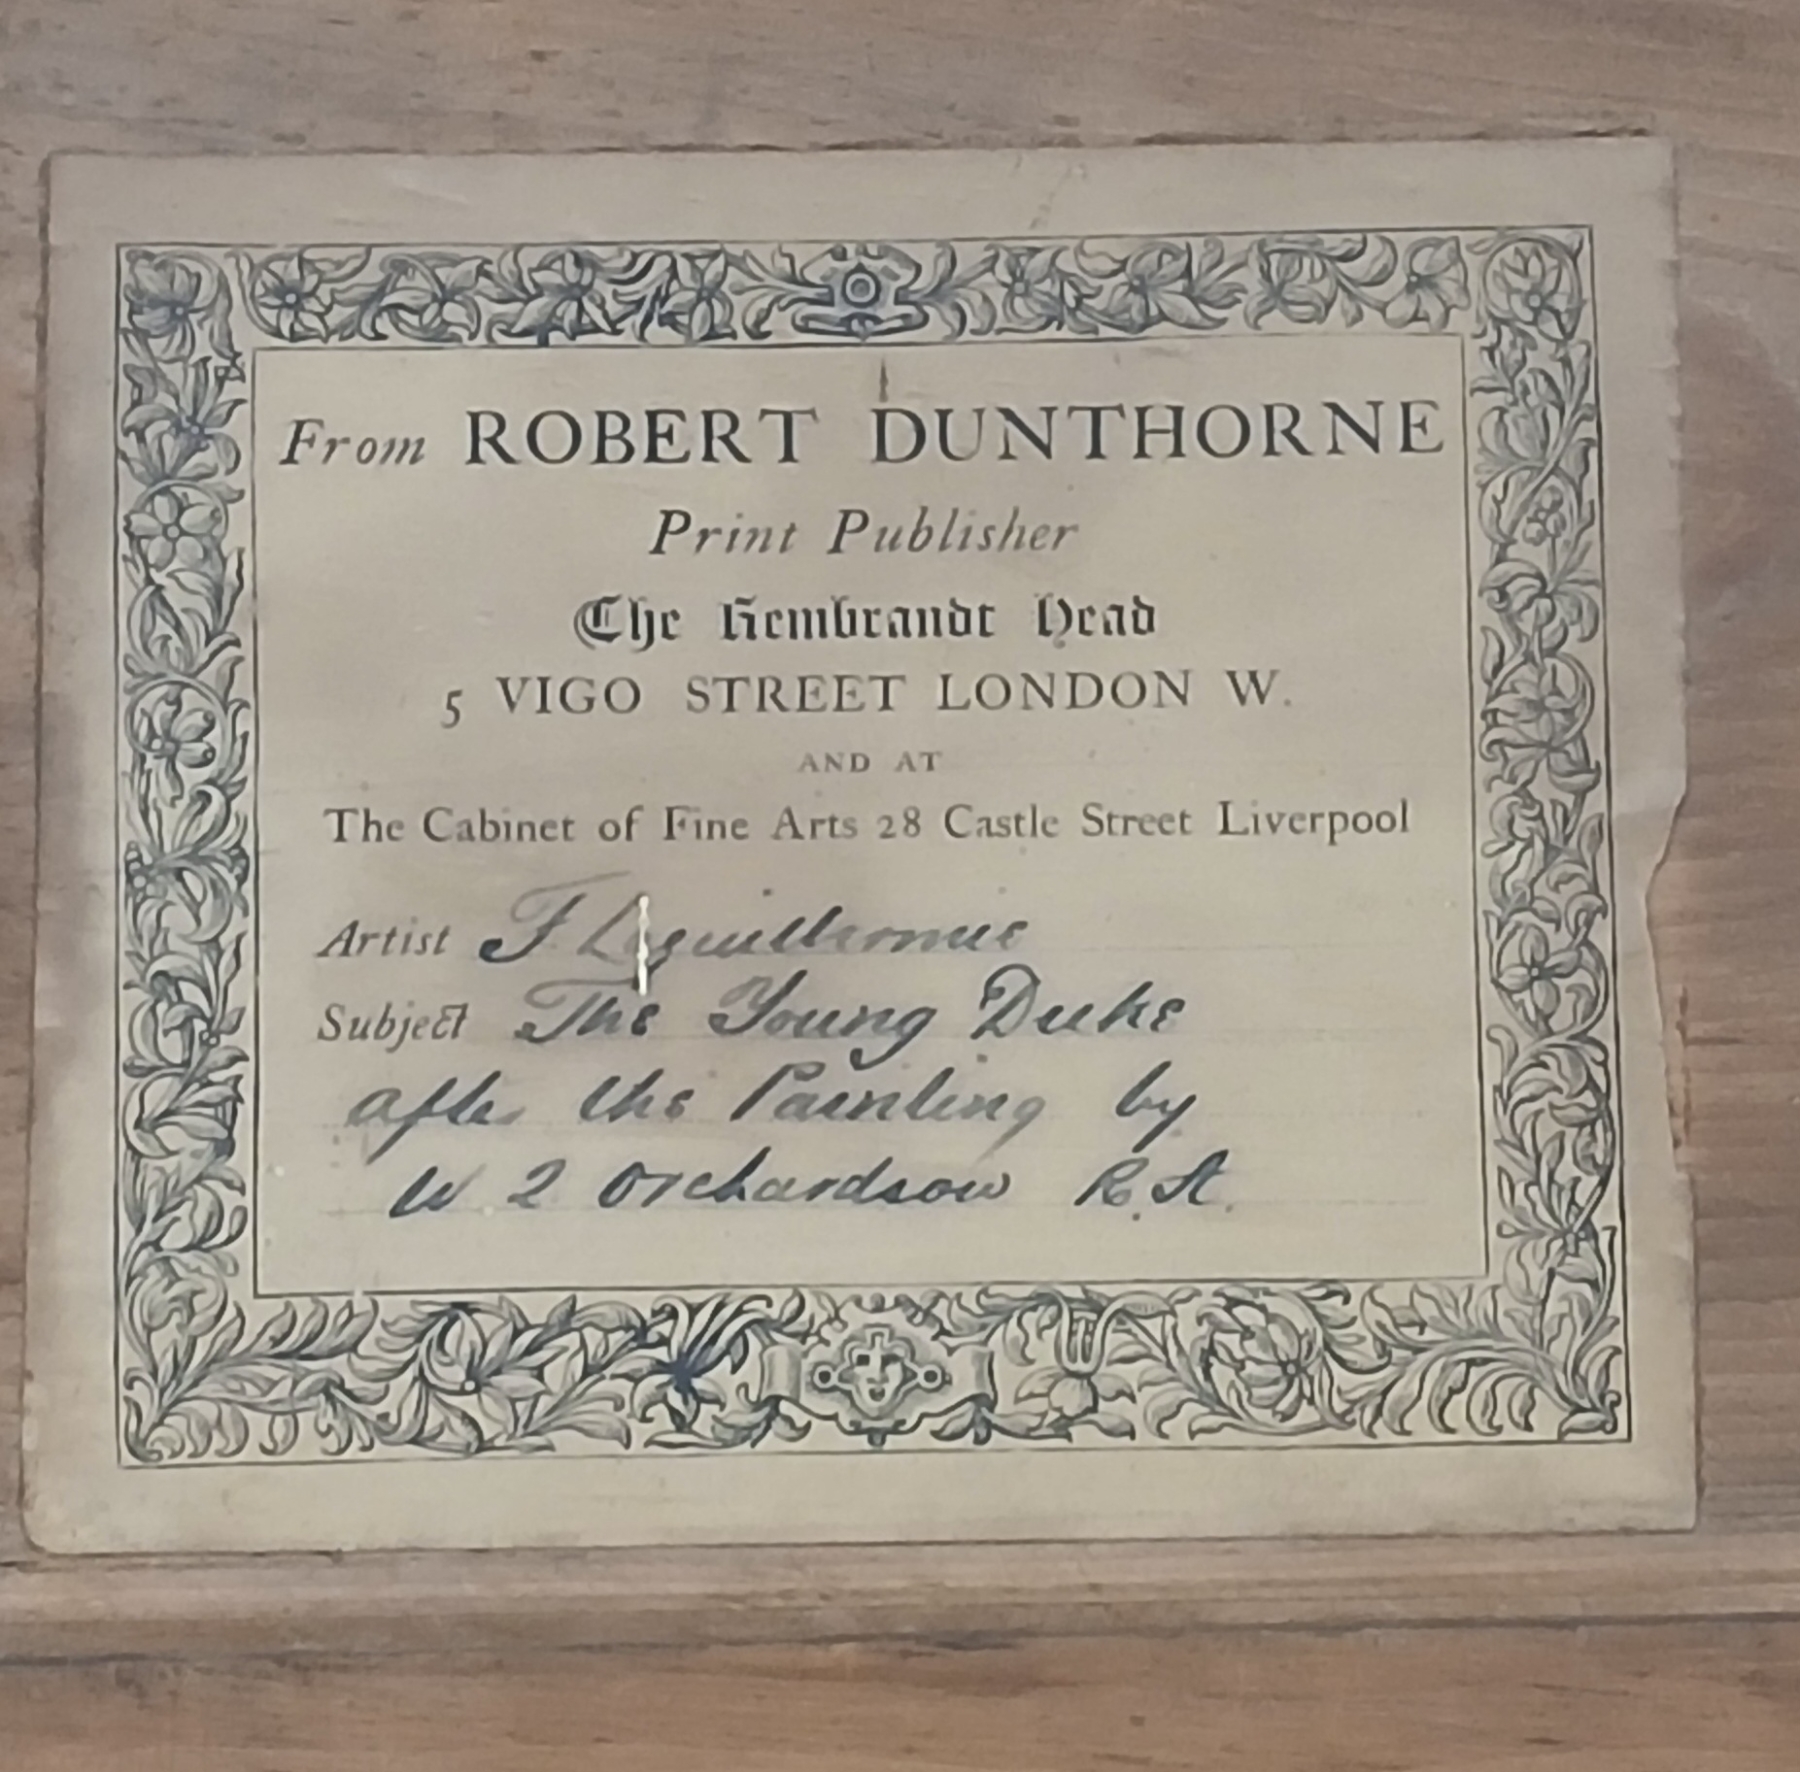 From ROBERT DUNTHORNE
Print Publisher
The Rembrandt Head
5 VIGO STREET LONDON W.
AND AT
The Cabinet of Fine Arts 28 Castle Street Liverpool
Artist F
Subject The Young Duke
after the Painting by
W Q Orchardson R.A.